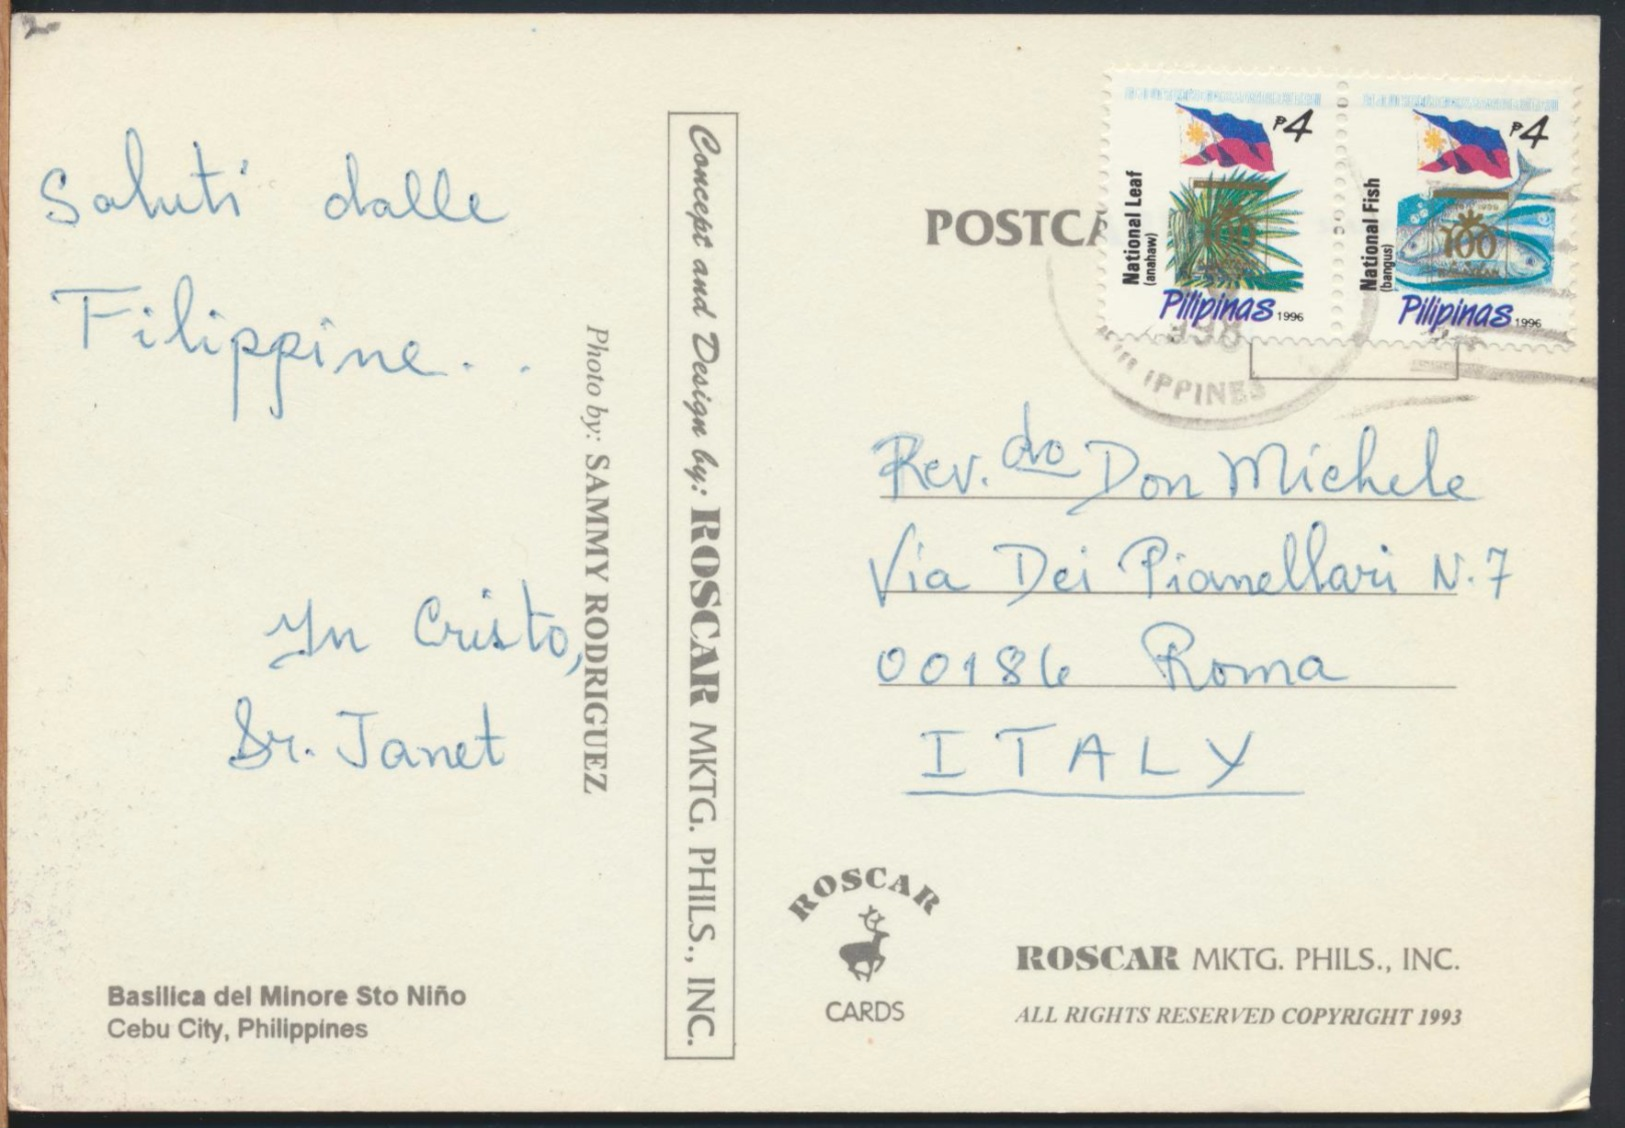 Saluti dalle
Filippine..
In Cristo,
Sr. Janet
Basilica del Minore Sto Niño
Cebu City, Philippines
Photo by: SAMMY RODRIGUEZ
Concept and Design by: ROSCAR MKTG. PHILS., INC.
POSTCA
₱4
National Leaf
(anahaw)
100
Pilipinas 1996
₱4
National Fish
(bangus)
100
Pilipinas 1996
IPPINES
Rev.do Don Michele
Via Dei Pianellari N.7
00186 Roma
ITALY
ROSCAR
CARDS
ROSCAR MKTG. PHILS., INC.
ALL RIGHTS RESERVED COPYRIGHT 1993